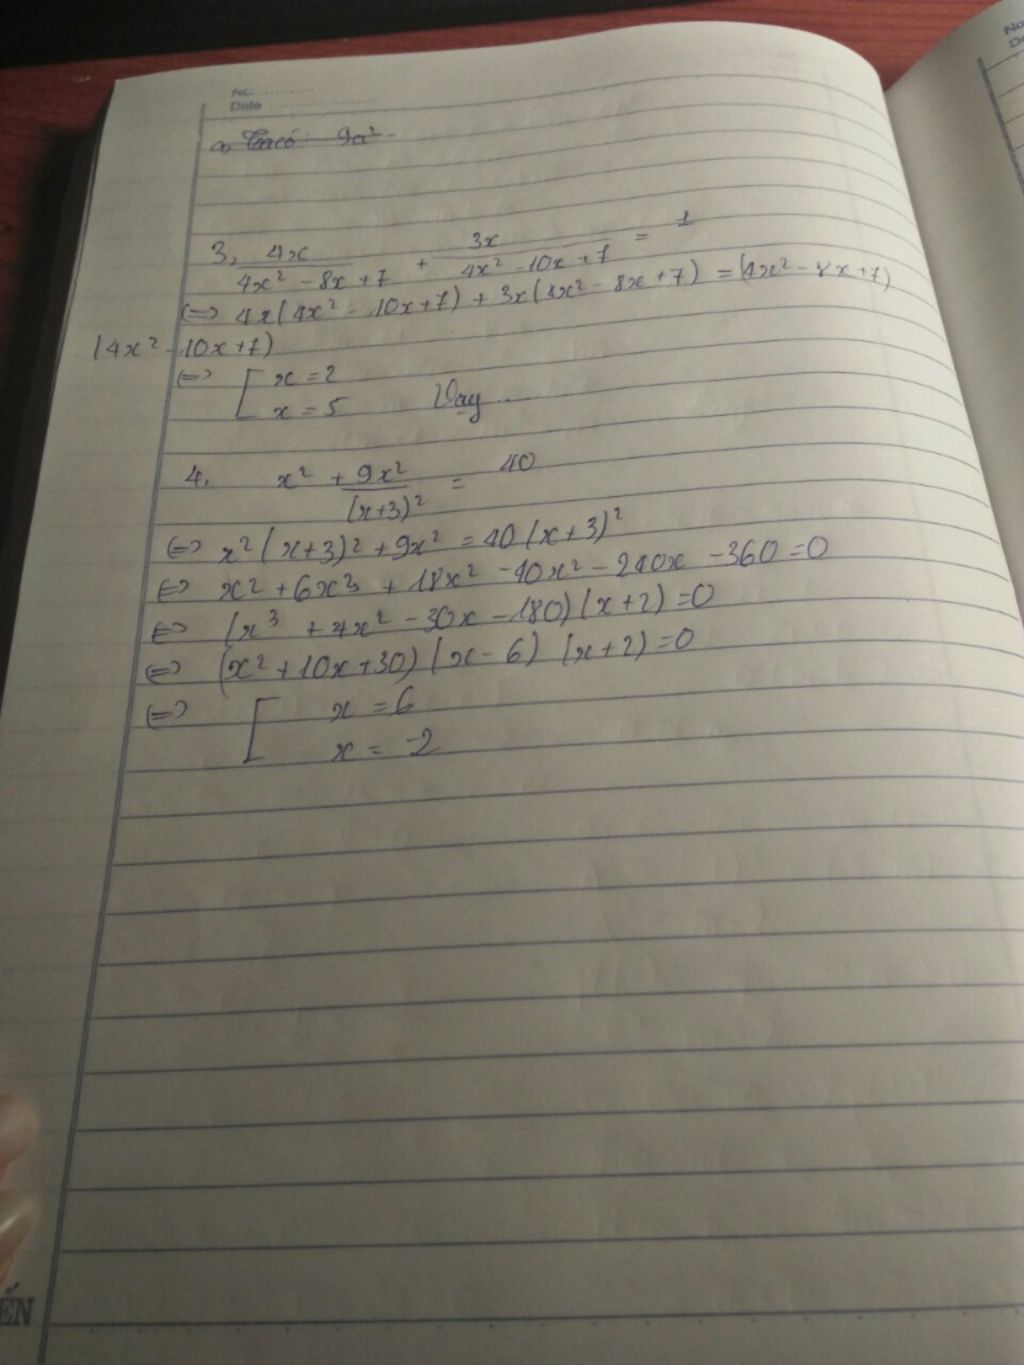 No. ............
Date ......................
a, Ta có: 9a² -
3, \frac{4x}{4x² - 8x + 7} + \frac{3x}{4x² - 10x + 7} = 1
(=) 4x(4x² - 10x + 7) + 3x(4x² - 8x + 7) = (4x² - 8x + 7)
(4x² - 10x + 7)
(=) [ x = 2
x = 5 Vậy .....
4, x² + \frac{9x²}{(x+3)²} = 40
(=) x²(x+3)² + 9x² = 40(x+3)²
(=) x² + 6x³ + 18x² - 40x² - 240x - 360 = 0
(=) (x³ + 4x² - 30x - 180)(x+2) = 0
(=) (x² + 10x + 30)(x - 6)(x+2) = 0
(=) [ x = 6
x = -2
No
Da
ẾN